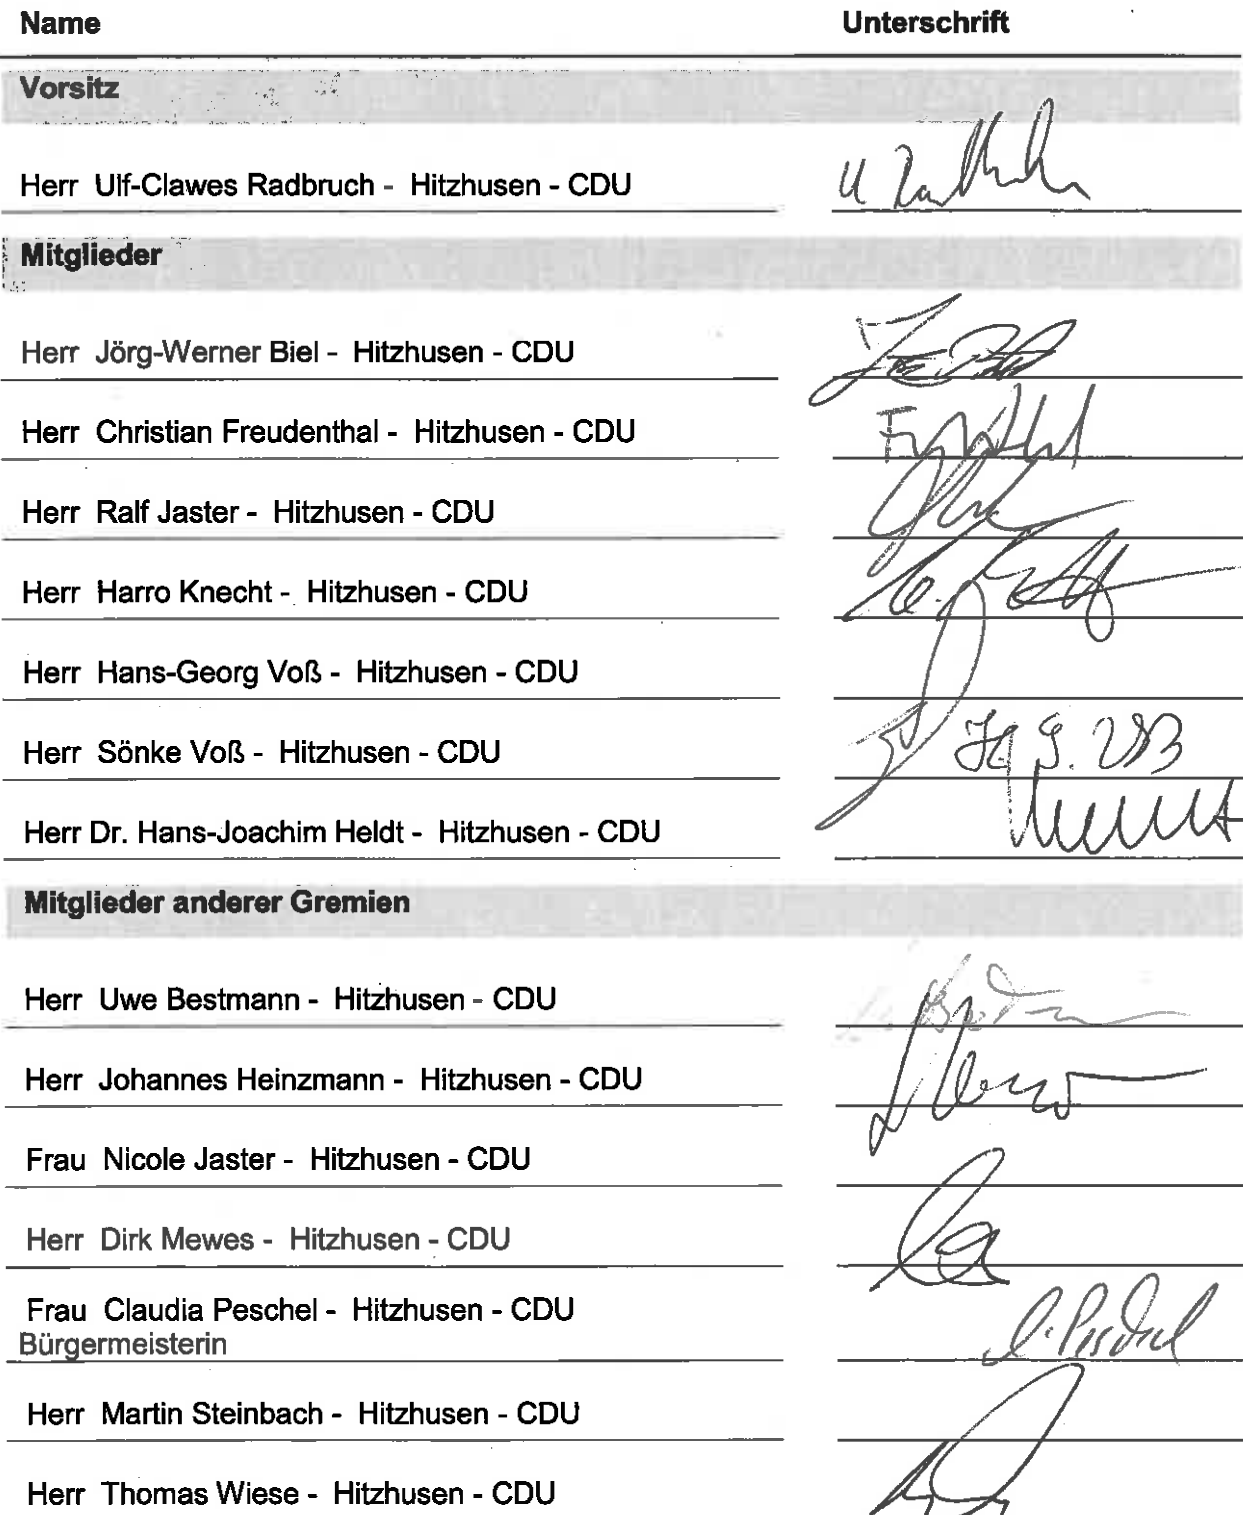 Name Unterschrift
Vorsitz
Herr Ulf-Clawes Radbruch - Hitzhusen - CDU
Mitglieder
Herr Jörg-Werner Biel - Hitzhusen - CDU
Herr Christian Freudenthal - Hitzhusen - CDU
Herr Ralf Jaster - Hitzhusen - CDU
Herr Harro Knecht - Hitzhusen - CDU
Herr Hans-Georg Voß - Hitzhusen - CDU
Herr Sönke Voß - Hitzhusen - CDU
Herr Dr. Hans-Joachim Heldt - Hitzhusen - CDU
Mitglieder anderer Gremien
Herr Uwe Bestmann - Hitzhusen - CDU
Herr Johannes Heinzmann - Hitzhusen - CDU
Frau Nicole Jaster - Hitzhusen - CDU
Herr Dirk Mewes - Hitzhusen - CDU
Frau Claudia Peschel - Hitzhusen - CDU
Bürgermeisterin C. Peschel
Herr Martin Steinbach - Hitzhusen - CDU
Herr Thomas Wiese - Hitzhusen - CDU